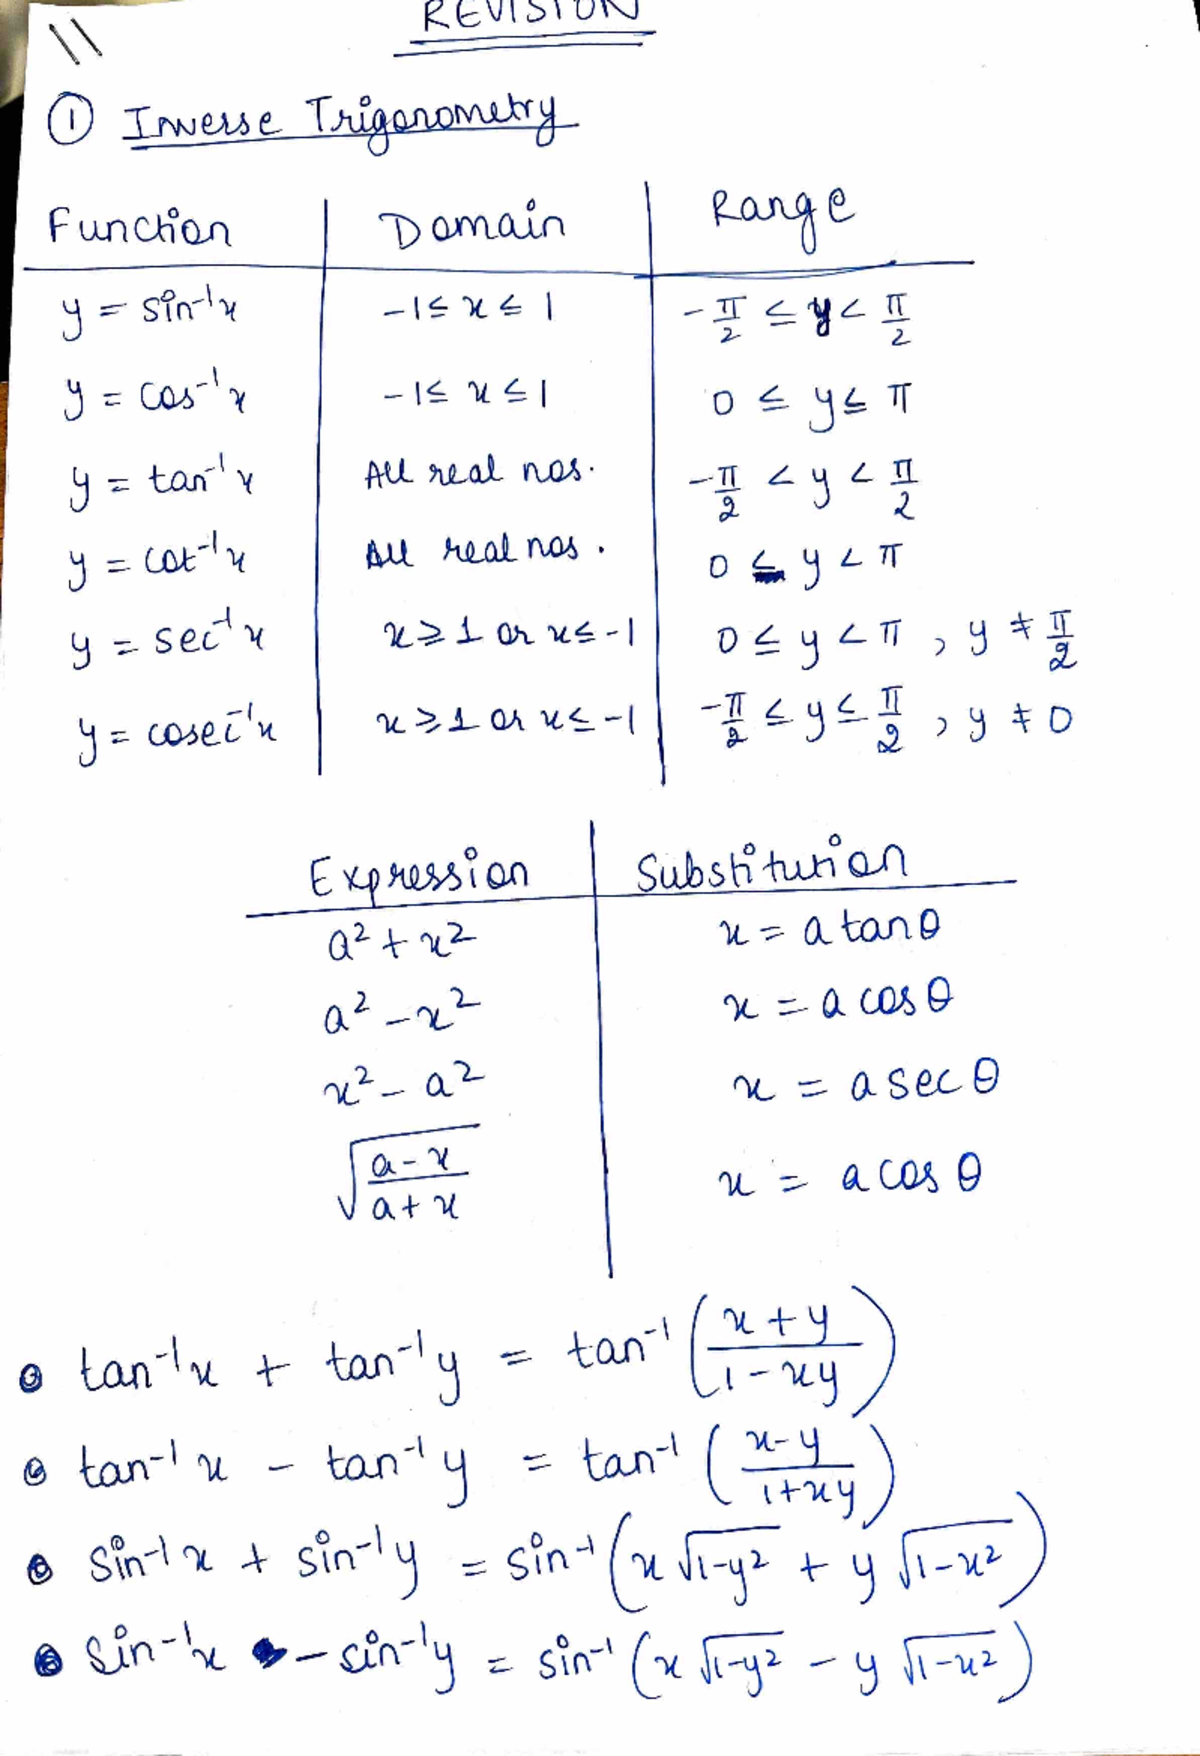 REVISION
11
① Inverse Trigonometry
Function | Domain | Range
y = sin⁻¹x | -1 ≤ x ≤ 1 | -π/2 ≤ y < π/2
y = cos⁻¹x | -1 ≤ x ≤ 1 | 0 ≤ y ≤ π
y = tan⁻¹x | All real nos. | -π/2 < y < π/2
y = cot⁻¹x | All real nos. | 0 < y < π
y = sec⁻¹x | x ≥ 1 or x ≤ -1 | 0 ≤ y < π, y ≠ π/2
y = cosec⁻¹x | x ≥ 1 or x ≤ -1 | -π/2 ≤ y ≤ π/2, y ≠ 0
Expression | Substitution
a² + x² | x = a tanθ
a² - x² | x = a cosθ
x² - a² | x = a secθ
√((a-x)/(a+x)) | x = a cosθ
tan⁻¹x + tan⁻¹y = tan⁻¹((x+y)/(1-xy))
tan⁻¹x - tan⁻¹y = tan⁻¹((x-y)/(1+xy))
sin⁻¹x + sin⁻¹y = sin⁻¹(x√(1-y²) + y√(1-x²))
sin⁻¹x - sin⁻¹y = sin⁻¹(x√(1-y²) - y√(1-x²))